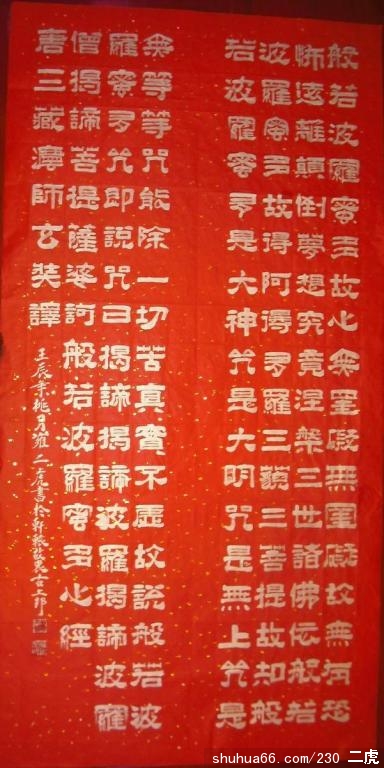 般若波羅蜜多故心無罣礙無罣礙故無有恐
怖遠離顛倒夢想究竟涅槃三世諸佛依般若
波羅蜜多故得阿耨多羅三藐三菩提故知般
若波羅蜜多是大神咒是大明咒是無上咒是
無等等咒能除一切苦真實不虛故說般若波
羅蜜多咒即說咒曰揭諦揭諦波羅揭諦波羅
僧揭諦菩提薩婆訶般若波羅蜜多心經
唐三藏灋師玄奘譯
壬辰年桃月 二虎書於軒轅故里
shuhua66.com/230 二虎